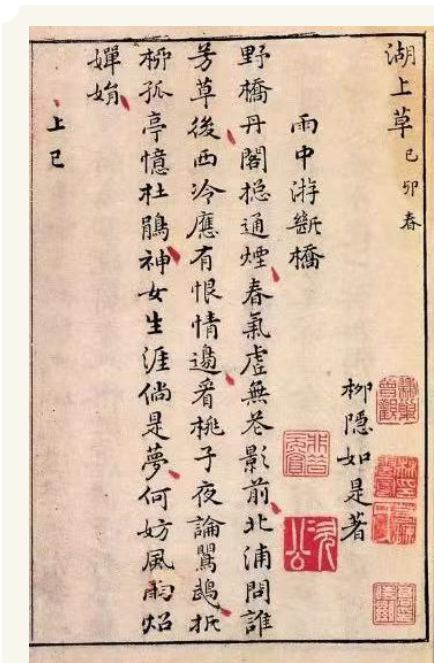 湖上草 己卯春
柳隱如是著
雨中游斷橋
野橋丹閣揔通煙春氣虛無花影前北浦問誰
芳草後西泠應有恨情邊看桃子夜論鸎鵡折
柳孤亭憶杜鵑神女生涯倘是夢何妨風雨炤
嬋娟
上巳